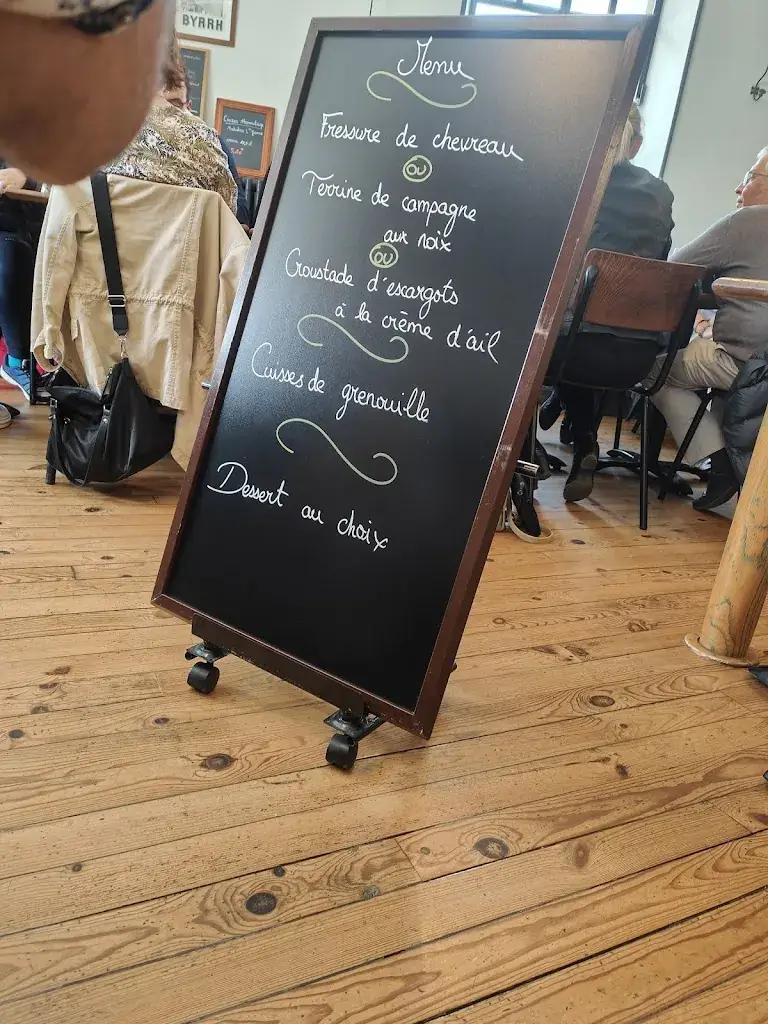 BYRRH
Menu
Fressure de chevreau
ou
Terrine de campagne
aux noix
ou
Croustade d'escargots
à la crème d'ail
Cuisses de grenouille
Dessert au choix